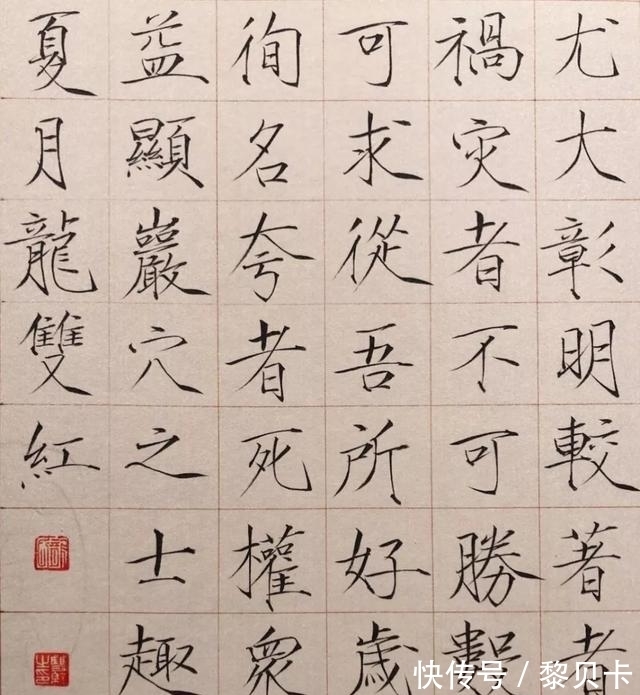 尤大彰明較著者
禍災者不可勝數
可求從吾所好歲
徇名夸者死權眾
益顯巖穴之士趣
夏月龍雙紅
快传号 / 黎贝卡